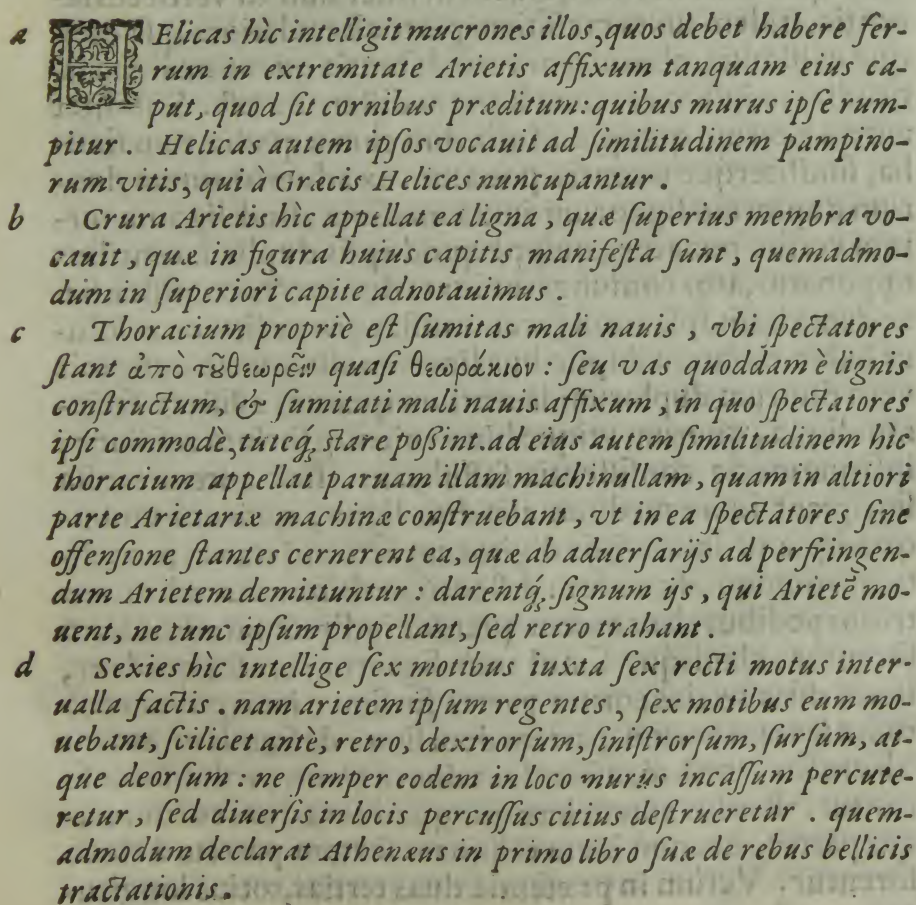 a HElicas hìc intelligit mucrones illos, quos debet habere fer-
rum in extremitate Arietis affixum tanquam eius ca-
put, quod ſit cornibus præditum: quibus murus ipſe rum-
pitur. Helicas autem ipſos vocauit ad ſimilitudinem pampino-
rum vitis, qui à Græcis Helices nuncupantur.
b Crura Arietis hìc appellat ea ligna, quæ ſuperius membra vo-
cauit, quæ in figura huius capitis manifeſta ſunt, quemadmo-
dum in ſuperiori capite adnotauimus.
c Thoracium propriè eſt ſumitas mali nauis, vbi ſpectatores
ſtant ἀπὸ τȣ͂θεωρεῖν quaſi θεωράκιον: ſeu vas quoddam è lignis
conſtructum, & ſumitati mali nauis affixum, in quo ſpectatores
ipſi commodè, tutéq́; ſtare poßint. ad eius autem ſimilitudinem hìc
thoracium appellat paruam illam machinullam, quam in altiori
parte Arietariæ machinæ conſtruebant, vt in ea ſpectatores ſine
offenſione ſtantes cernerent ea, quæ ab aduerſarijs ad perfringen-
dum Arietem demittuntur: darentq́; ſignum ijs, qui Arietē mo-
uent, ne tunc ipſum propellant, ſed retro trahant.
d Sexies hìc intellige ſex motibus iuxta ſex recti motus inter-
ualla factis. nam arietem ipſum regentes, ſex motibus eum mo-
uebant, ſcilicet antè, retro, dextrorſum, ſiniſtrorſum, ſurſum, at-
que deorſum: ne ſemper eodem in loco murus incaſſum percute-
retur, ſed diuerſis in locis percuſſus citius deſtrueretur. quem-
admodum declarat Athenæus in primo libro ſuæ de rebus bellicis
tractationis.